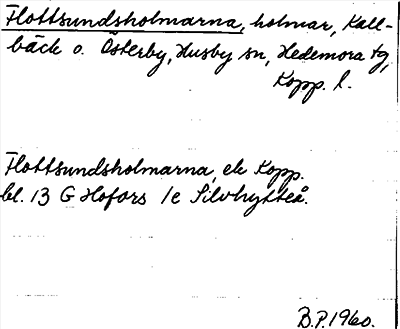 Flottsundsholmarna, holmar, Kall-
bäck o. Österby, Husby sn, Hedemora tg,
Kopp. l.
Flottsundsholmarna, ek Kopp.
bl. 13 G Hofors 1e Silvhytteå.
B.P. 1960.